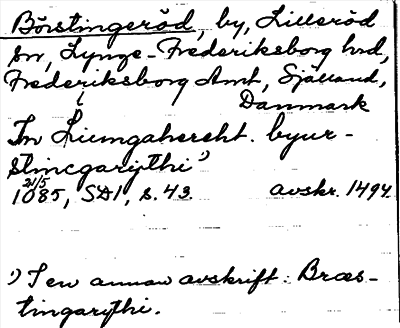 Börstingeröd, by, Lilleröd
sn, Lynge-Frederiksborg hrd,
Frederiksborg Amt, Själland,
Danmark
In Liumgahercht. byur-
stincgarijthi ¹)
21/5
1085, SD1, s. 43. avskr. 1494.
¹) I en annan avskrift: Bræs-
tingarijthi.